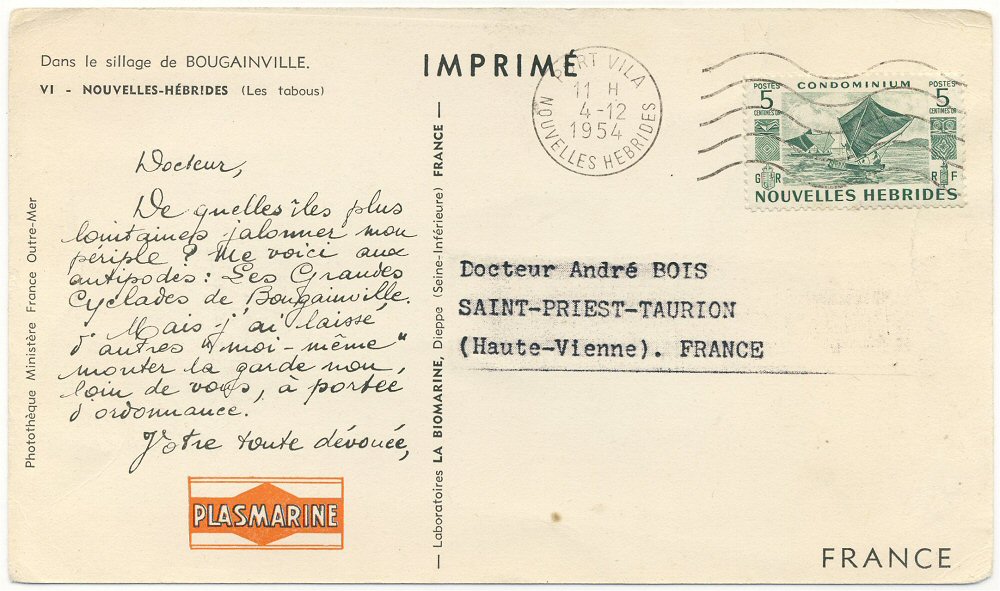 Dans le sillage de BOUGAINVILLE.
VI - NOUVELLES-HÉBRIDES (Les tabous)
Docteur,
De quelles îles plus
lointaines jalonner mon
périple ? Me voici aux
antipodes : Les Grandes
Cyclades de Bougainville.
Mais j'ai laissé
d'autres "moi-même"
monter la garde non
loin de vous, à portée
d'ordonnance.
Votre toute dévouée,
PLASMARINE
Photothèque Ministère France Outre-Mer
— Laboratoires LA BIOMARINE, Dieppe (Seine-Inférieure) FRANCE —
IMPRIMÉ
PORT VILA
11 H
4-12
1954
NOUVELLES HEBRIDES
POSTES CONDOMINIUM POSTES
5 5
CENTIMES OR CENTIMES OR
G R R F
NOUVELLES HEBRIDES
Docteur André BOIS
SAINT-PRIEST-TAURION
(Haute-Vienne). FRANCE
FRANCE